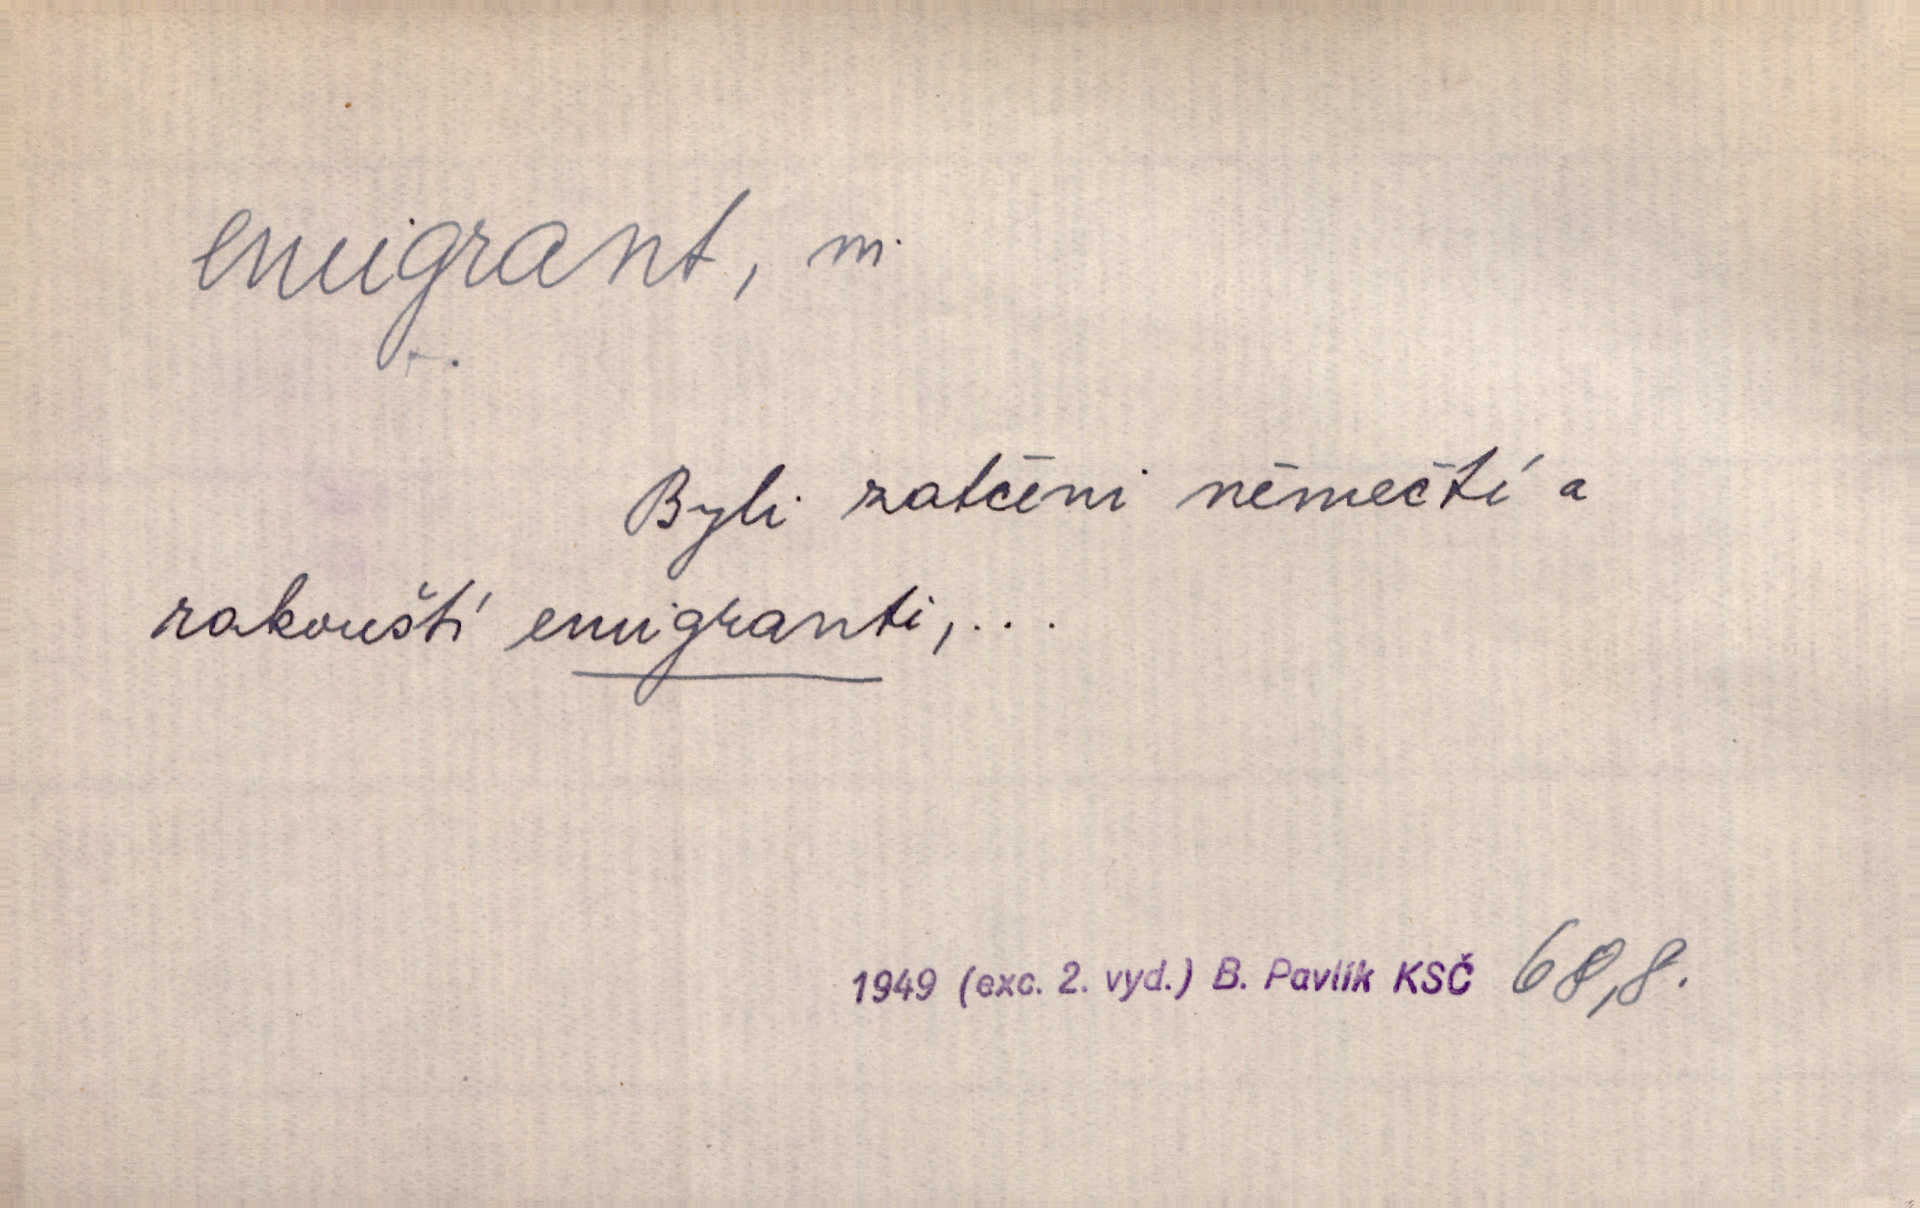 emigrant, m.
Byli zatčeni němečtí a
rakouští emigranti,...
1949 (exc. 2. vyd.) B. Pavlík KSČ 68,8.